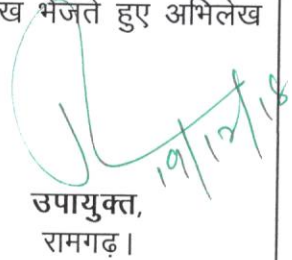 ख भेजते हुए अभिलेख
19/12/18
उपायुक्त,
रामगढ़।